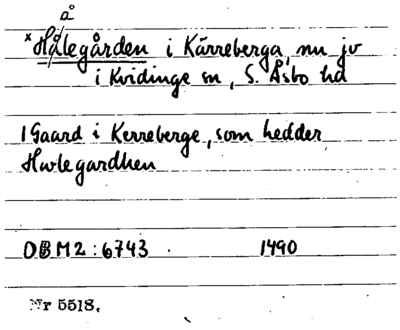 å
*Hålegården i Kärreberga, nu jv
i Kvidinge sn, S. Åsbo hd
1 Gaard i Kerreberge, som hedder
Hwlegardhen
OBM2:6743 1490
Nr 5518.